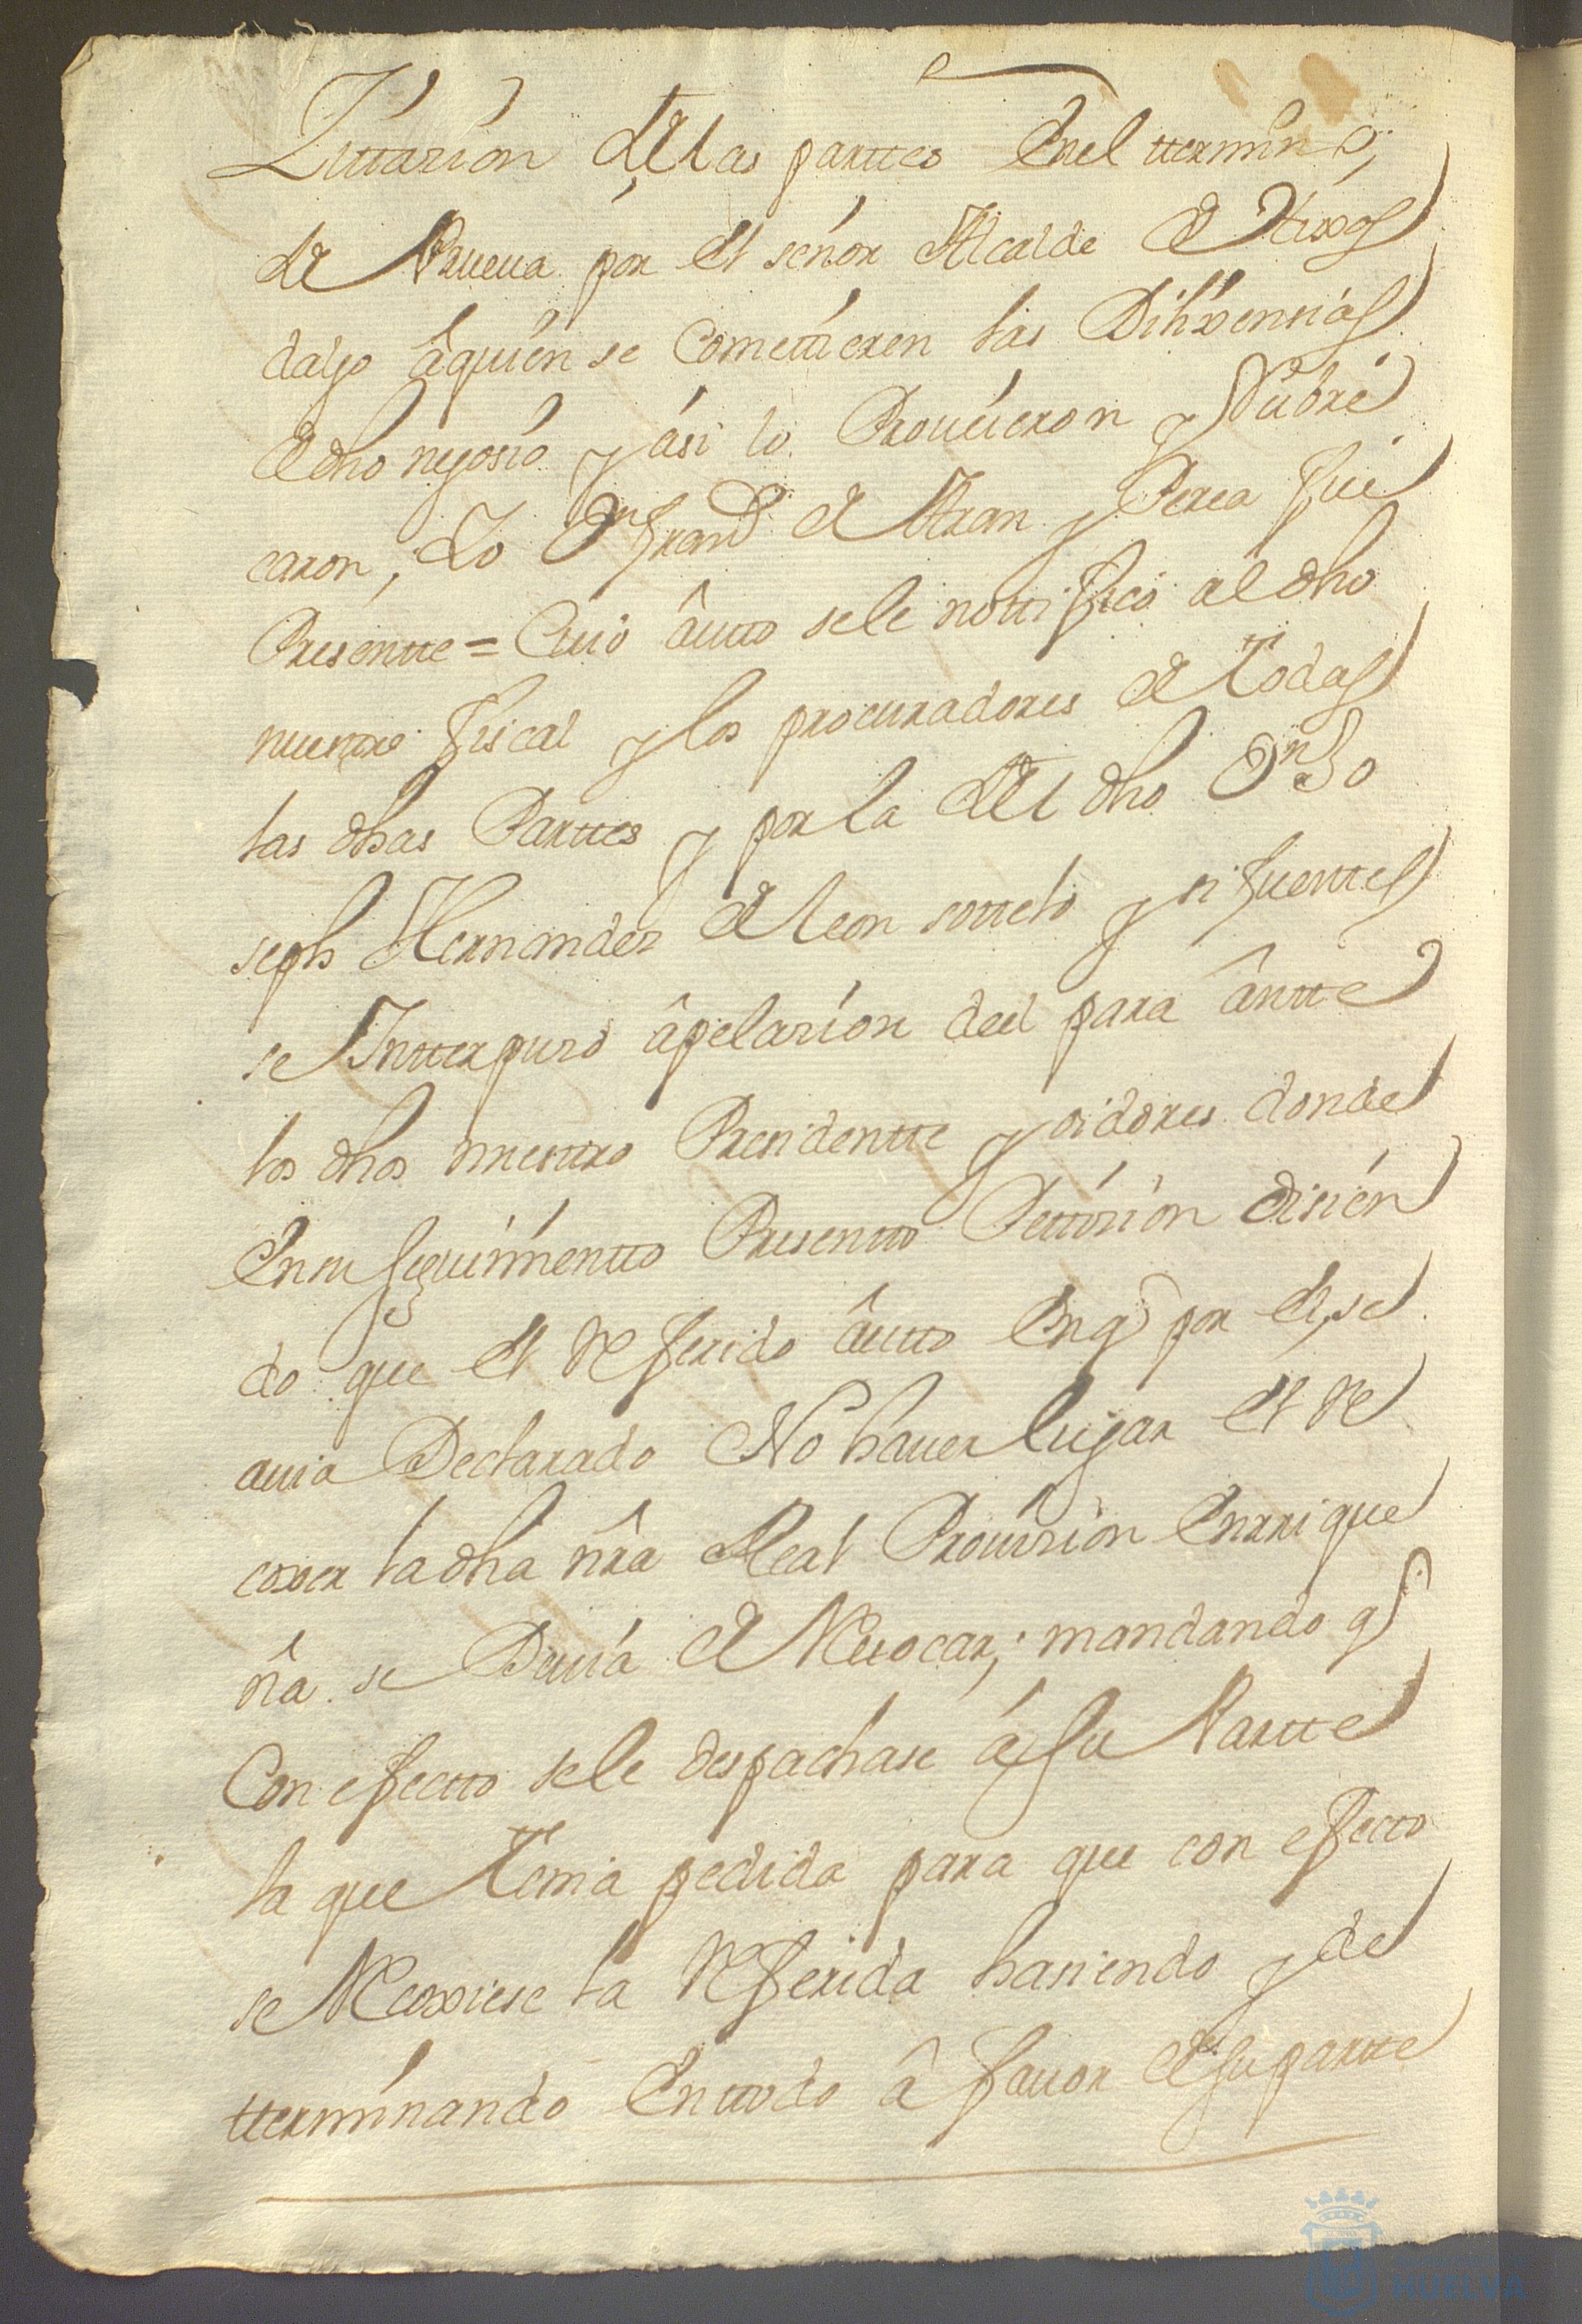 Zittasion de las parttes En el ttermino,
de Prueua por el señor Alcalde de Hixos
dalgo â quien se Comettieren las Dilixensias
de dho negosio y ási lo Proueieron y Rubri
caron, Yo Dn Franco de Aran y Perea fui
Presentte = Cuio âutto se le nottificó al dho
nuestro fiscal y los procuradores de Todas
las dhas Parttes y por la del dho Dn Jo
seph Hernandez de leon sottelo y sifuenttes
se Intterpuso âpelasion de el para ântte
los dhos nuestro Presidentte y oidores donde
En su seguimientto Presentto Pettision disien
do que el Referido âutto En q por el, se
auia Declarado No hauer lugar el Re
coxer la dha nrâ Real Prouision Enrrique
ñâ se Deuia de Reuocar; mandando q
Con efectto se le despachase á su Partte
la que Tenia pedida para que con efecto
se Recoxiese la Referida hasiendo y de
tterminando En ttodo â fauor de su partte
HUELVA